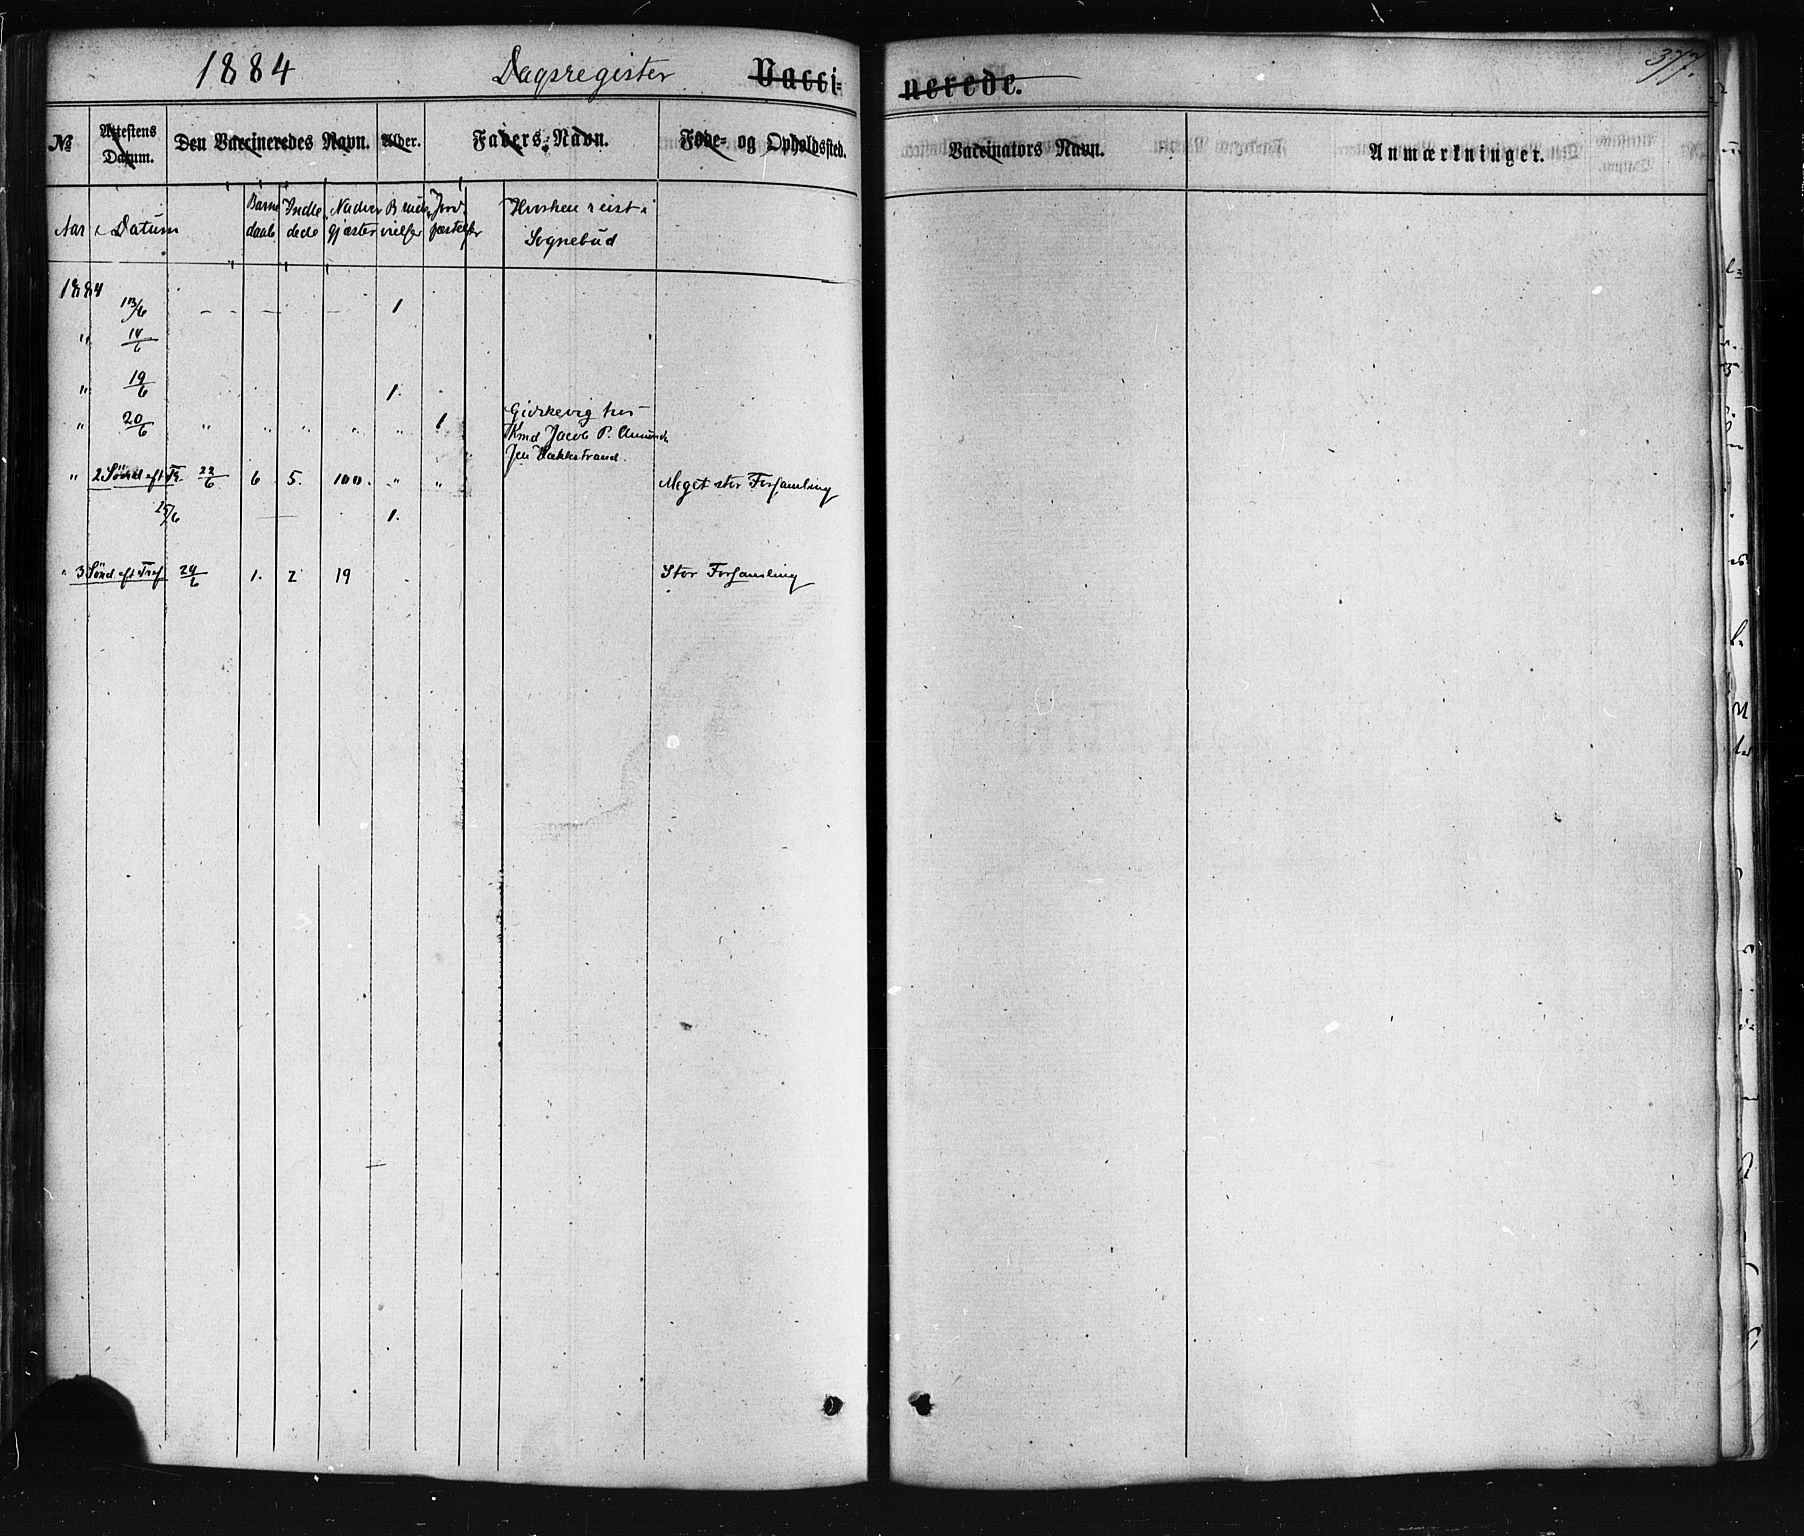 1884 Dagsregister Vacci-
nerede. 377.
No Attestens Datum. Den Vaccineredes Navn. Alder. Faders-Navn. Føde- og Opholdssted.
Vaccinators Navn. Anmærkninger.
Aar Datum Barne daab Indle dede Nadver gjæster vielser Jord fæstelser Sognebud
1884
13/6 - - - - 1
" 14/6
" 19/6 1.
" 20/6 " " " " " 1
Jacob P.
" 2 Sönd eft Tr. 22/6 6 5. 100. " " Meget stor Forsamling
25/6 1.
" 3 Sönd eft Tref 29/6 1. 2 19 Stor Forsamling